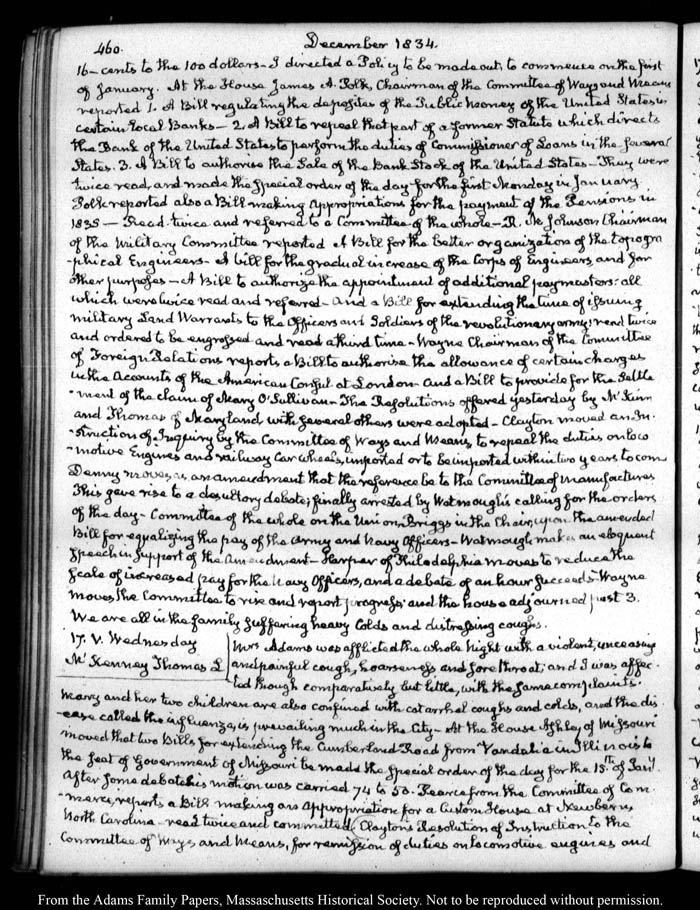 460.
December 1834.
16 - cents to the 100 dollars - I directed a Policy to be made out, to commence on the first
of January. At the House James K. Polk, Chairman of the Committee of Ways and Means
reported 1. A Bill regulating the deposites of the Public money of the United States in
certain local Banks - 2. A Bill to repeal that part of a former Statute which directs
the Bank of the United States to perform the duties of Commissioner of Loans in the several
States. 3. A Bill to authorise the Sale of the Bank Stock of the United States - They were
twice read, and made the Special order of the day for the first Monday in January.
Polk reported also a Bill making appropriations for the payment of the Pensions in
1835 - Read twice and referred to a Committee of the whole - R. M. Johnson Chairman
of the Military Committee reported A Bill for the better organization of the topogra
-phical Engineers - A bill for the gradual increase of the Corps of Engineers and for
other purposes - A Bill to authorize the appointment of additional paymasters: all
which were twice read and referred - And a Bill for extending the time of issuing
military Land Warrants to the Officers and Soldiers of the revolutionary army; read twice
and ordered to be engrossed and read a third time - Wayne Chairman of the Committee
of Foreign Relations reports a Bill to authorise the allowance of certain charges
in the Accounts of the American Consul at London - And a Bill to provide for the Settle
-ment of the claim of Mary O'Sullivan - The Resolutions offered yesterday by McKim
and Thomas of Maryland, with several others were adopted - Clayton moved an In-
-struction of Inquiry by the Committee of Ways and Means, to repeal the duties on loco
-motive Engines and railway Car wheels, imported or to be imported within two years to come
Denny moves, as an amendment that the reference be to the Committee of manufactures
This gave rise to a desultory debate; finally arrested by Watmough's calling for the orders
of the day - Committee of the whole on the Union, Briggs in the Chair, upon the amended
Bill for equalizing the pay of the Army and Navy Officers - Watmough makes an eloquent
Speech in support of the Amendment - Harper of Philadelphia moves to reduce the
Scale of increased pay for the Navy Officers, and a debate of an hour succeeds - Wayne
moves the Committee to rise and report progress; and the house adjourned past 3.
We are all in the family suffering heavy Colds and distressing coughs.
17. V. Wednesday
McKenney Thomas L
Mrs Adams was afflicted the whole Night with a violent, unceasing
and painful cough, hoarseness and sore throat; and I was affec-
ted though comparatively but little, with the same complaints.
Mary and her two children are also confined with catarrhal coughs and colds, and the dis-
-ease called the influenza, is prevailing much in the City - At the House Ashley of Missouri
moved that two Bills for extending the Cumberland Road from Vandalia in Illinois to
the seat of Government of Missouri be made the special order of the day for the 15th of Jany
After some debate his motion was carried 74 to 53. Pearce from the Committee of Com
-merce, reports a Bill making an Appropriation for a Custom House at Newbern,
North Carolina - read twice and committed. Clayton's Resolution of Instruction to the
Committee of Ways and Means, for remission of duties on locomotive engines and
From the Adams Family Papers, Massachusetts Historical Society. Not to be reproduced without permission.